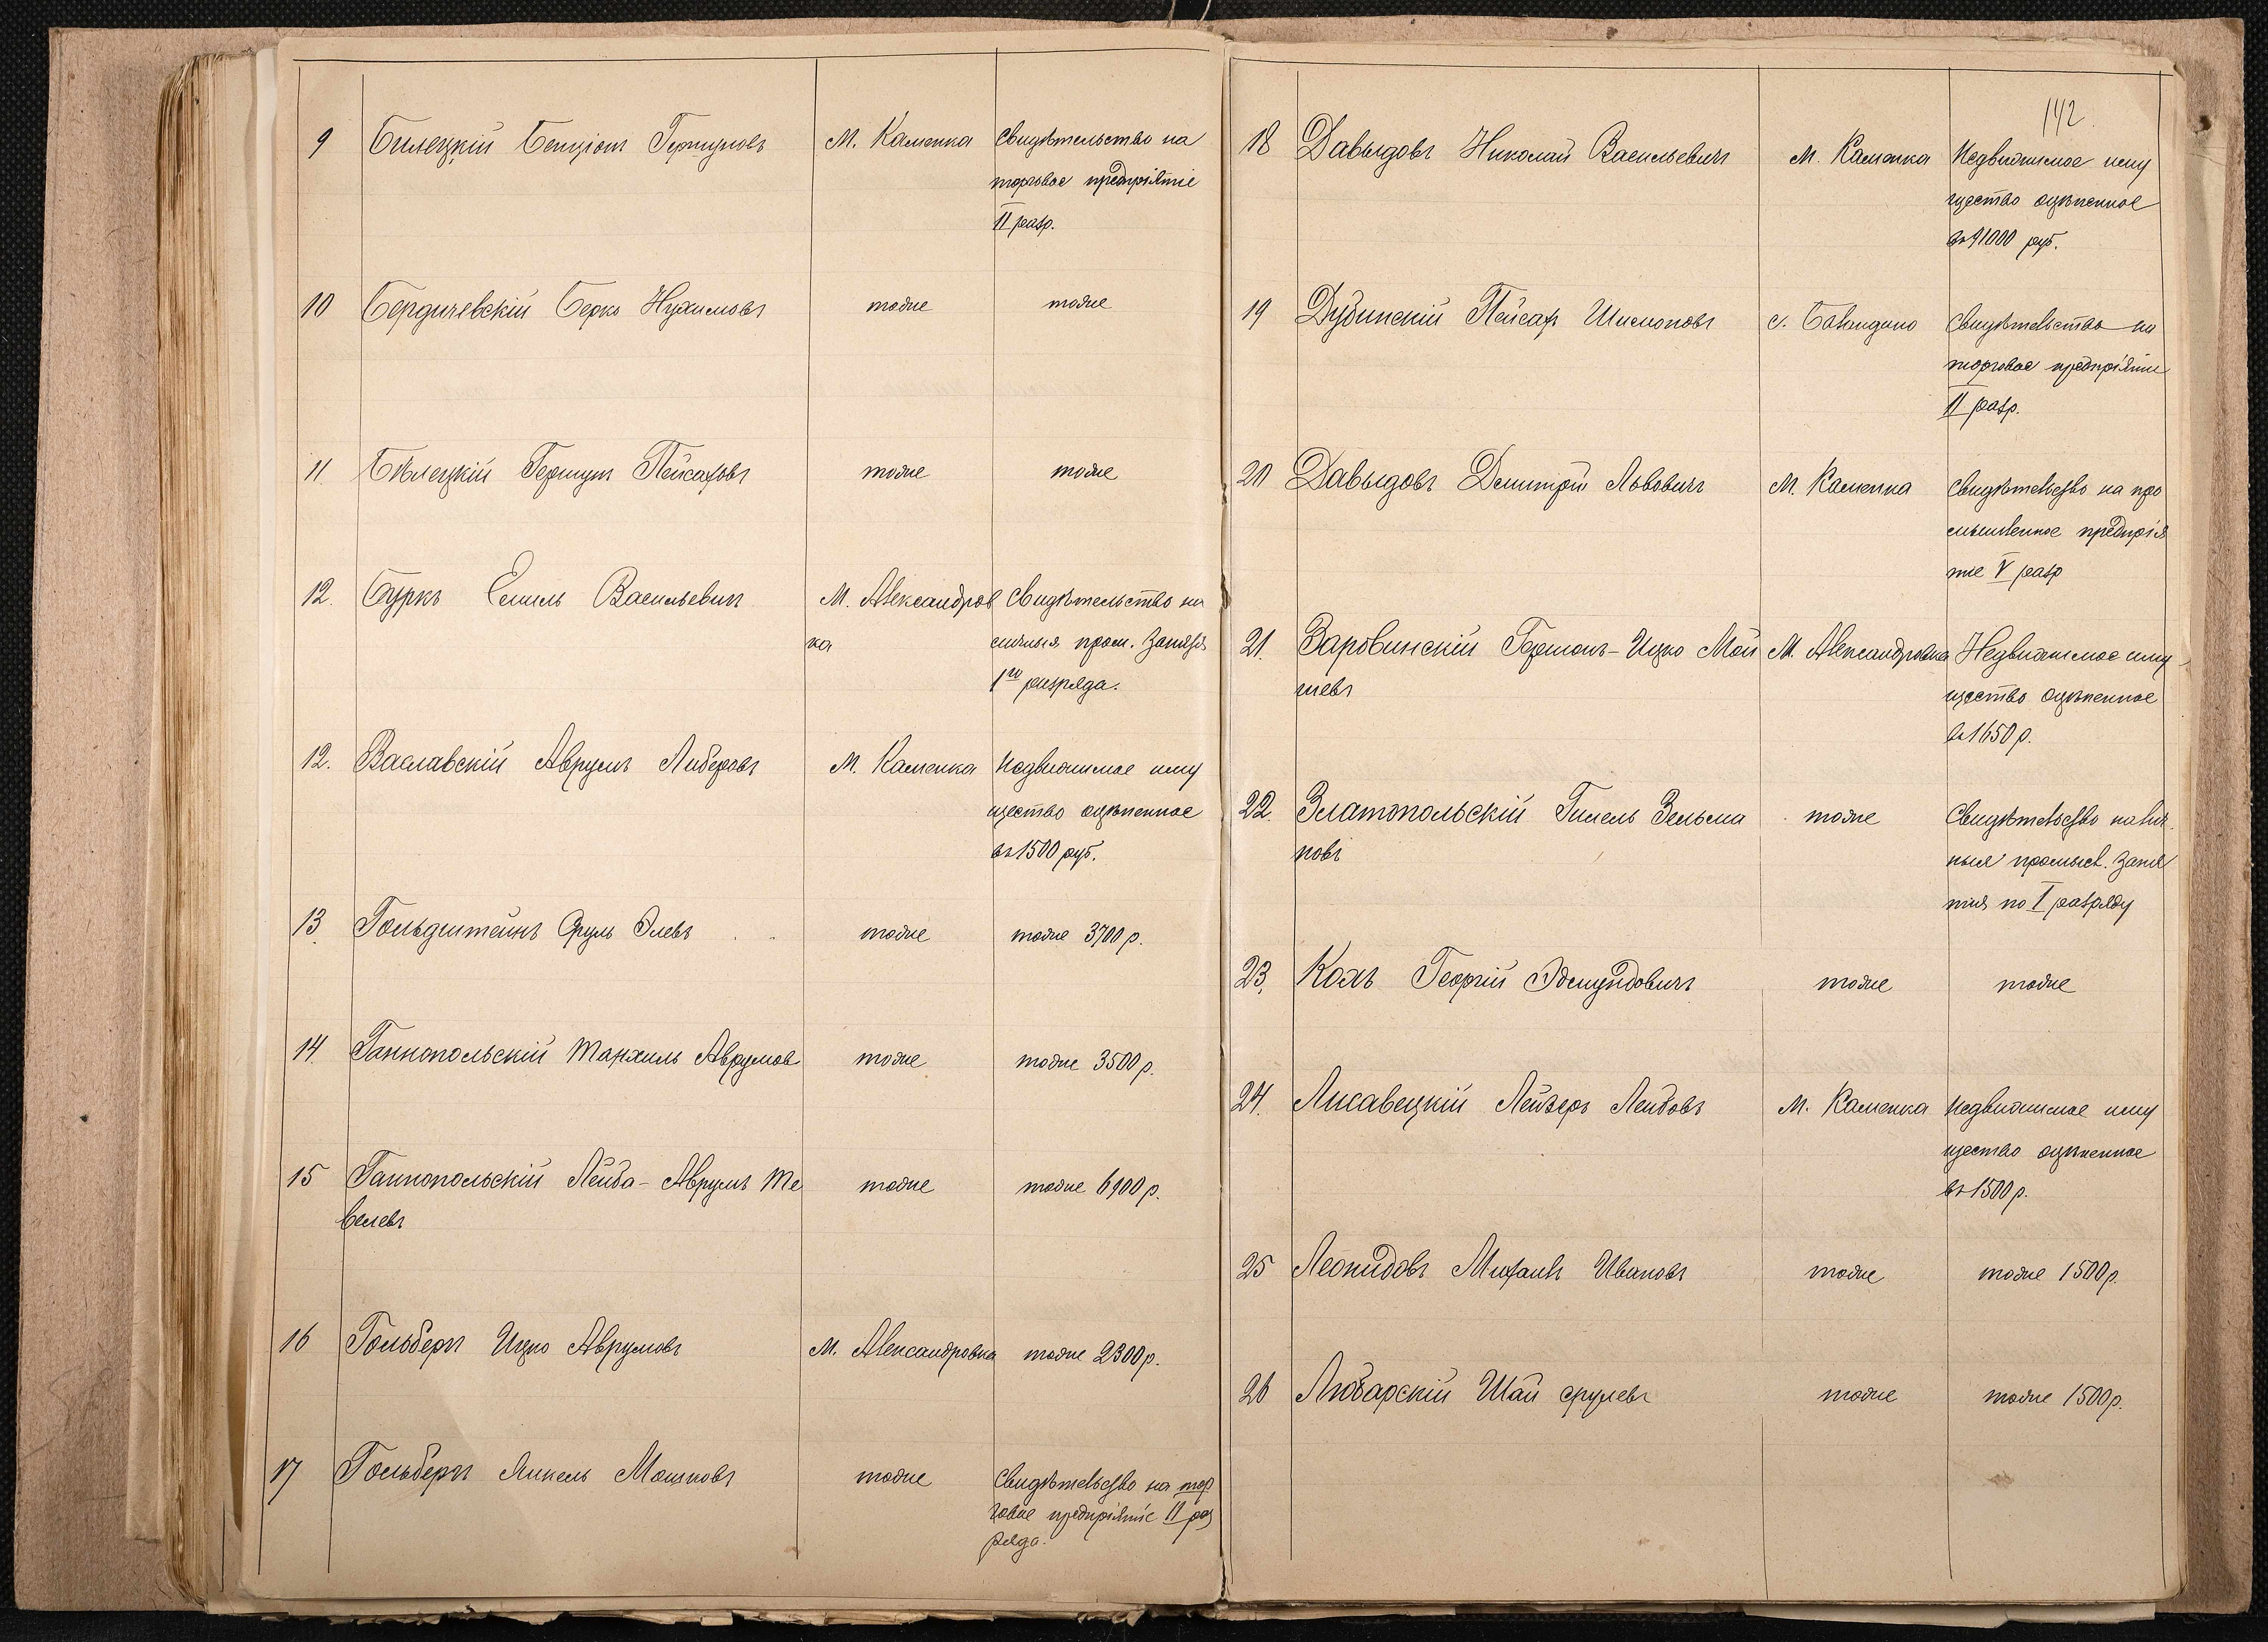 9 Билецкій Бенціонъ Гершуновъ М. Каменка Свидѣтельство на
торговое предпріятіе
II разр.
10 Бердичевскій Берко Нухимовъ тоже тоже
11 Бѣлецкій Гершунъ Пейсаховъ тоже тоже
12. Буркъ Емиль Васильевичъ М. Александров Свидѣтельство на
ка личныя пром. занятія
1го разряда.
12. Ваславскій Аврумъ Либеровъ М. Каменка Недвижимое иму
щество оцѣненное
въ 1500 руб.
13 Гольдштейнъ Сруль Элевъ тоже тоже 3700 р.
14 Ганнопольскій Танхиль Аврумов тоже тоже 3500 р.
15 Ганнопольскій Лейба-Аврумъ Те тоже тоже 6900 р.
велевъ
16 Гольберг Ицко Аврумовъ М. Александровка тоже 2300 р.
17 Гольберг Янкель Мошковъ тоже Свидѣтельство на тор
говое предпріятіе II раз
ряда.
142
18 Давыдовъ Николай Васильевичъ М. Каменка Недвижимое иму
щество оцѣненное
въ 41000 руб.
19 Дубинскій Пейсах Шимоновъ с. Баландино Свидѣтельство на
торговое предпріятіе
II разр.
20 Давыдовъ Дмитрій Львовичъ М. Каменка Свидѣтельство на про
мышленное предпрія
тіе V разр
21. Заровинскій Гершонъ-Ицко Мой М. Александровка Недвижимое иму
шевъ щество оцѣненное
въ 1650 р.
22. Златопольскій Гилель Зельма тоже Свидѣтельство на лич
новъ ныя промысл. заня
тія по I разряду
23. Колъ Георгій Эдмундовичъ тоже тоже
24. Лисавецкій Лейзеръ Лейбовъ М. Каменка Недвижимое иму
щество оцѣненное
въ 1500 р.
25 Леонидовъ Михаилъ Ивановъ тоже тоже 1500 р.
26 Любарскій Шая Срулевъ тоже тоже 1500 р.